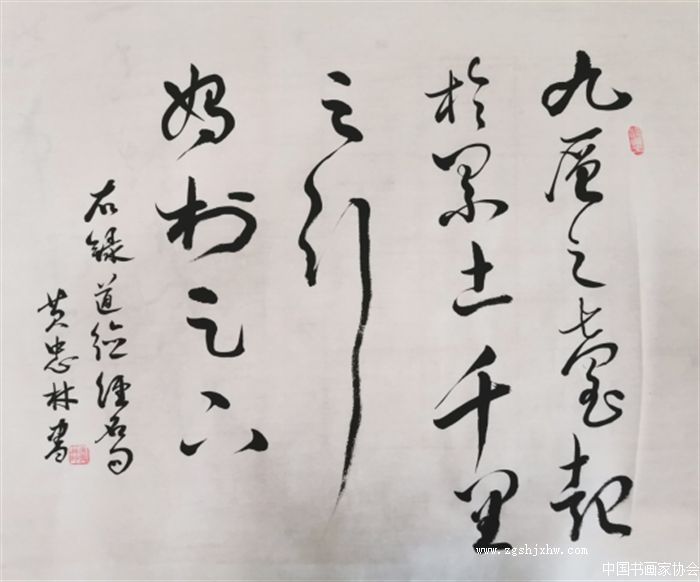 九層之臺起
於累土千里
之行
始於足下
右錄道德經名句
黄忠林書
www.zgshjxhw.com
中国书画家协会